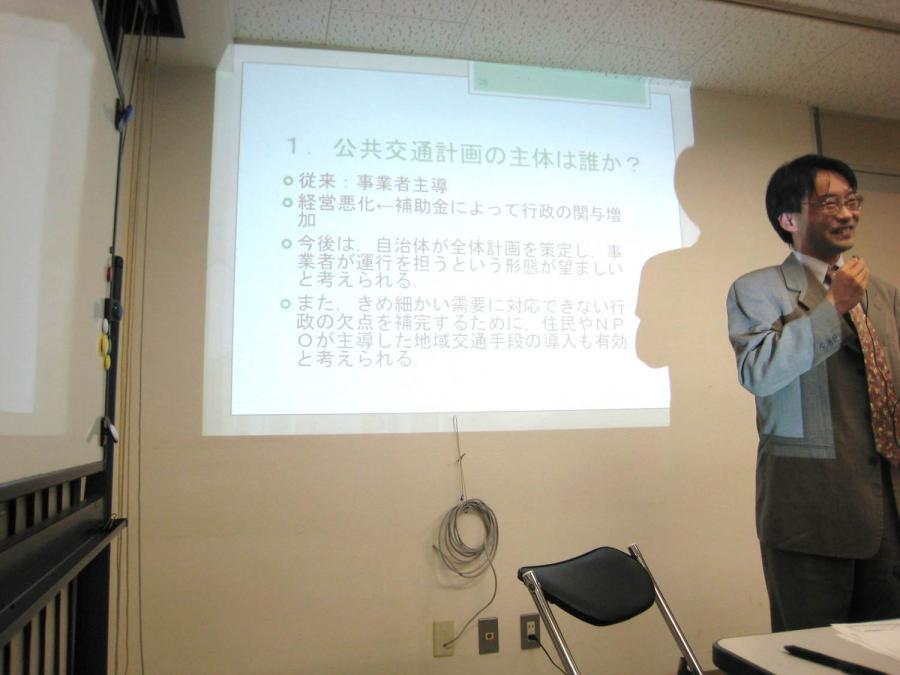 １．公共交通計画の主体は誰か？
従来：事業者主導
経営悪化←補助金によって行政の関与増
加
今後は，自治体が全体計画を策定し，事
業者が運行を担うという形態が望ましい
と考えられる．
また，きめ細かい需要に対応できない行
政の欠点を補完するために，住民やＮＰ
Ｏが主導した地域交通手段の導入も有効
と考えられる．